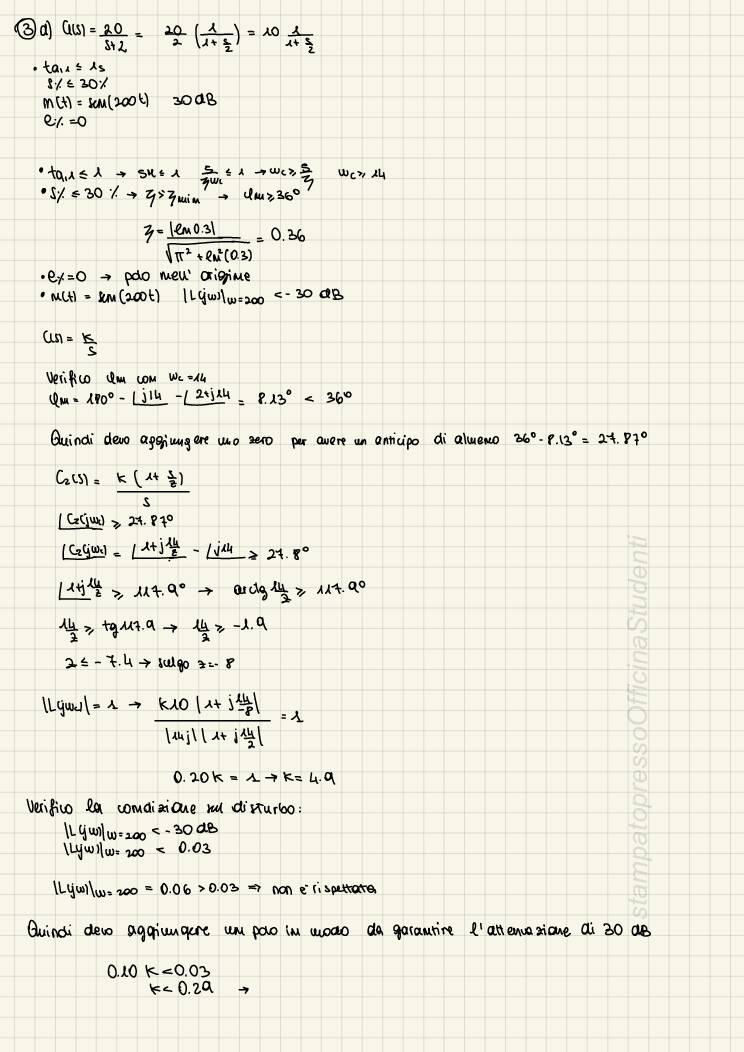 ③ a) G(s) = 20/(s+2) = 20/2 (1/(1+s/2)) = 10 1/(1+s/2)
• ta,1 ≤ 1s
S% ≤ 30%
m(t) = sen(200t) 30 dB
e% = 0
• ta,1 ≤ 1 → 5/(ξωc) ≤ 1 → ωc ≥ 5/ξ ωc ≥ 14
• S% ≤ 30 % → ξ ≥ ξmin → φm ≥ 36°
ξ = |ln 0.3| / √(π² + ln²(0.3)) = 0.36
• e% = 0 → polo nell' origine
• m(t) = sen(200t) |L(jω)|ω=200 < -30 dB
C(s) = k/s
Verifico φm con ωc = 14
φm = 180° - ∠j14 - ∠2+j14 = 8.13° < 36°
Quindi devo aggiungere uno zero per avere un anticipo di almeno 36° - 8.13° = 27.87°
C2(s) = k (1 + s/z) / s
∠C2(jωc) ≥ 27.87°
∠C2(jωc) = ∠1+j14/z - ∠j14 ≥ 27.8°
∠1+j14/z ≥ 117.9° → arctg 14/z ≥ 117.9°
14/z ≥ tg 117.9 → 14/z ≥ -1.9
z ≤ -7.4 → scelgo z = -8
|L(jωc)| = 1 → k10 |1 + j14/-8| / (|14j| |1 + j14/2|) = 1
0.20k = 1 → k = 4.9
Verifico la condizione sul disturbo:
|L(jω)|ω=200 < -30 dB
|L(jω)|ω=200 < 0.03
|L(jω)|ω=200 = 0.06 > 0.03 ⇒ non è rispettata
Quindi devo aggiungere un polo in modo da garantire l'attenuazione di 30 dB
0.10 k < 0.03
k < 0.29 →
stampatopressoOfficinaStudenti